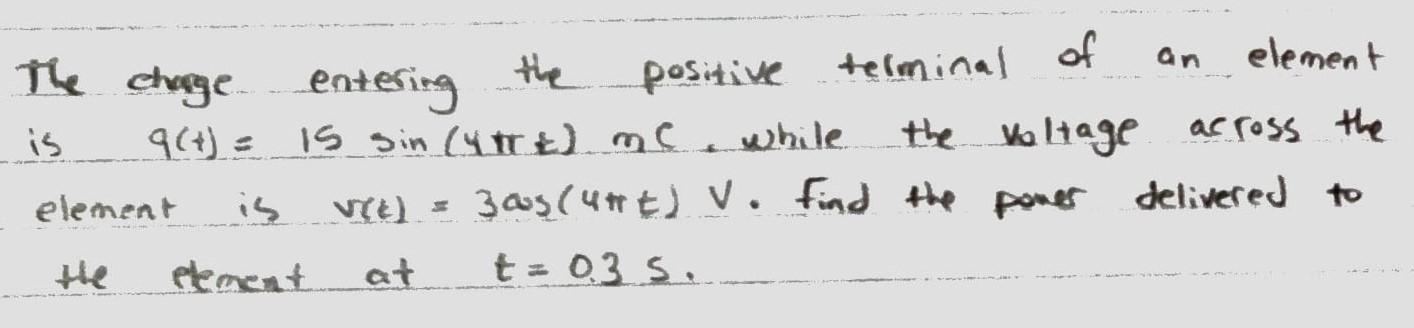 The charge entering the positive terminal of an element
is q(t) = 15 sin (4πt) mC, while the voltage across the
element is v(t) = 3cos(4πt) V. find the power delivered to
the element at t = 0.3 s.